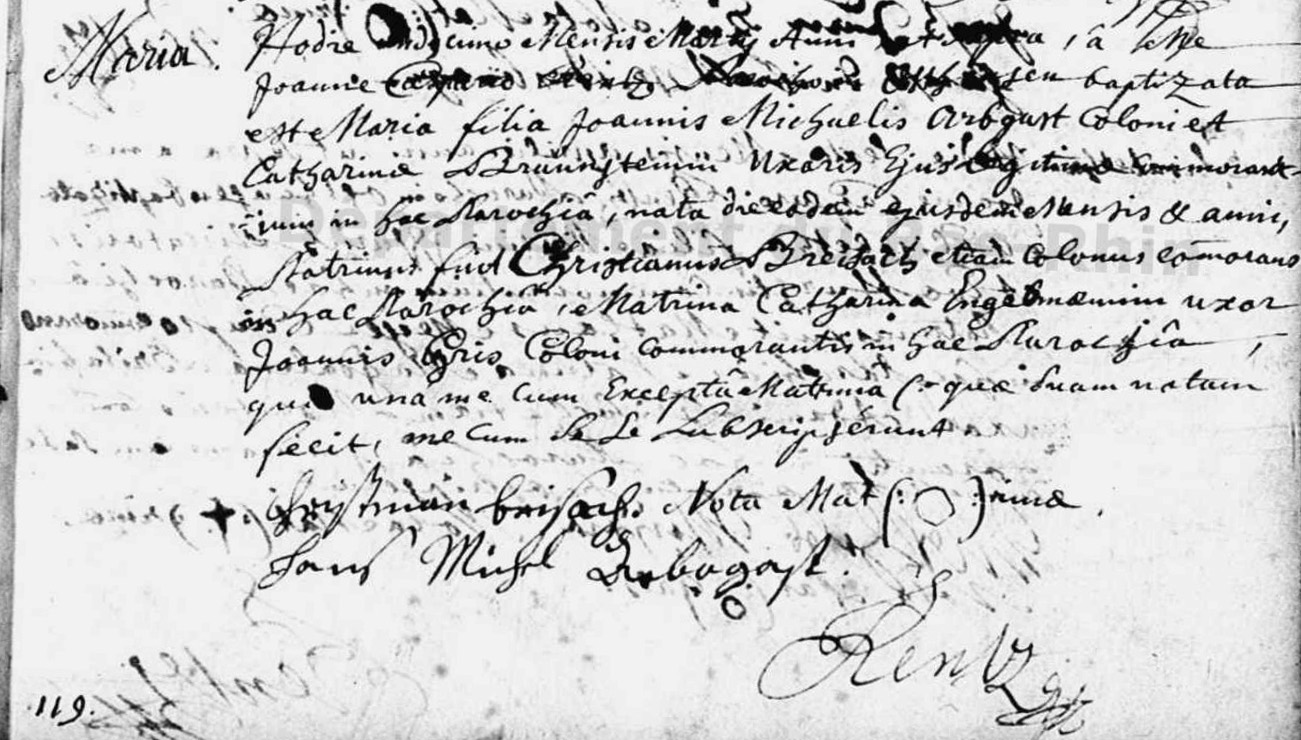 Maria. Hodie undecimo Mensis Martij Anni ut supra, à me
Joanne Casparo Rentz Parocho seu baptizata
est Maria filia Joannis Michaelis Arbogast Coloni et
Catharinæ Braunsteinin Uxoris Ejus legitimæ commorant-
ium in hac Parochiâ, nata die eodem ejusdem Mensis & anni,
Patrinus fuit Christianus Breisach etiam Colonus comorans
in hac Parochiâ, Matrina Catharina uxor
Joannis Coloni commorantis in hac Parochiâ,
qui una me cum Exceptâ Matrina (: quæ suam notam
fecit, me cum se se subscripserunt
Christman breisach Nota Mat (: :) rinæ.
Hans Michel Arbogast.
Rentz
119.
Département du Bas-Rhin